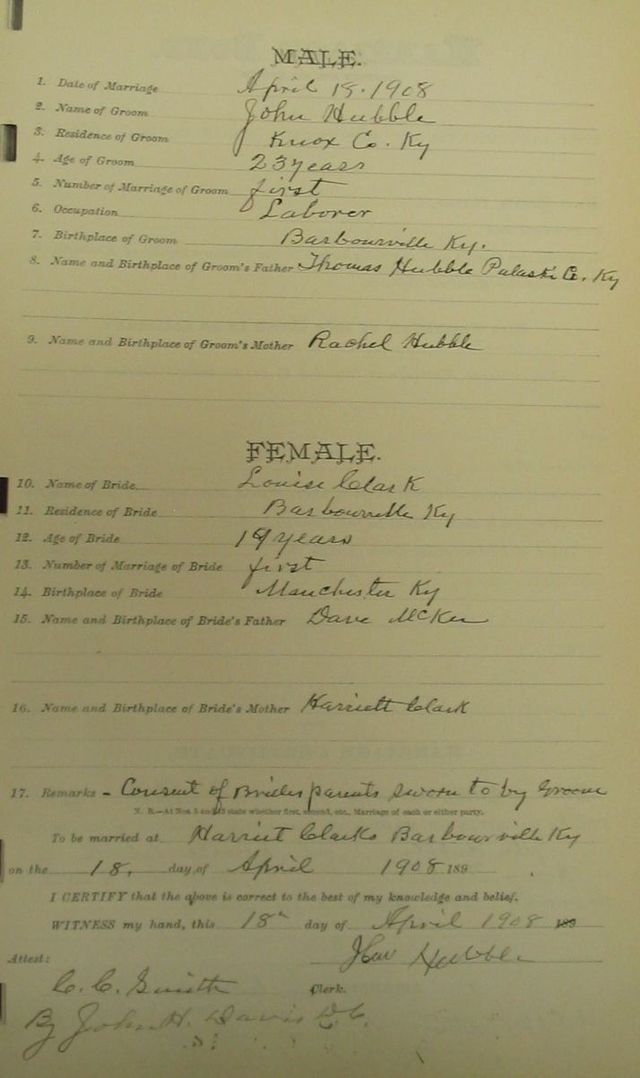 MALE.
1. Date of Marriage April 18. 1908
2. Name of Groom John Hubble
3. Residence of Groom Knox Co. Ky
4. Age of Groom 23 years
5. Number of Marriage of Groom first
6. Occupation Laborer
7. Birthplace of Groom Barbourville Ky.
8. Name and Birthplace of Groom's Father Thomas Hubble Pulaski Co. Ky
9. Name and Birthplace of Groom's Mother Rachel Hubble
FEMALE.
10. Name of Bride Louise Clark
11. Residence of Bride Barbourville Ky
12. Age of Bride 19 years
13. Number of Marriage of Bride first
14. Birthplace of Bride Manchester Ky
15. Name and Birthplace of Bride's Father Dave McKee
16. Name and Birthplace of Bride's Mother Harriett Clark
17. Remarks - Consent of Brides parents sworn to by Groom
N. B.—At Nos. 5 and 13 state whether first, second, etc., Marriage of each or either party.
To be married at Harriet Clarks Barbourville Ky
on the 18. day of April 1908 189
I CERTIFY that the above is correct to the best of my knowledge and belief.
WITNESS my hand, this 18" day of April 1908 189
Hubble
Attest:
C. C. Smith Clerk.
By John H. Davis D.C.